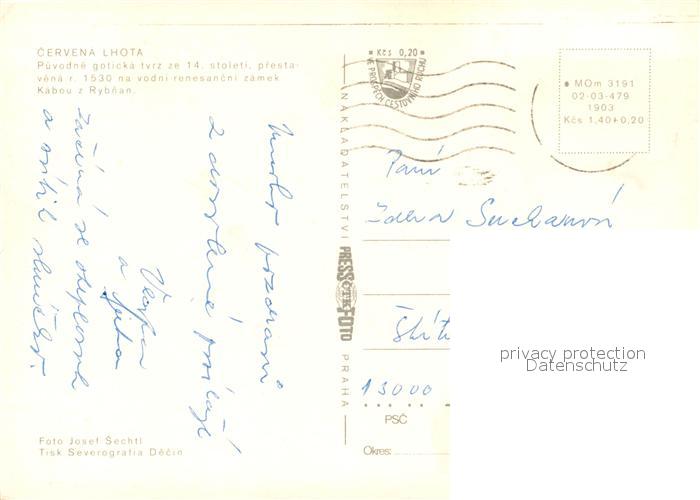 ČERVENÁ LHOTA
Původně gotická tvrz ze 14. století, přesta-
věná r. 1530 na vodní renesanční zámek
Kábou z Rybňan.
Mnoho pozdravů
z dovolené posílají
Věra
a Jirka
začíná se oteplovat
a svítit sluníčko.
Foto Josef Šechtl
Tisk Severografia Děčín
NAKLADATELSTVÍ
PRESSFOTO
PRAHA
Kčs 0,20
VE PROSPĚCH CESTOVNÍHO RUCHU
MOm 3191
02-03-479
1903
Kčs 1,40+0,20
Paní
Suchanová
13000
PSČ
Okres:
privacy protection
Datenschutz